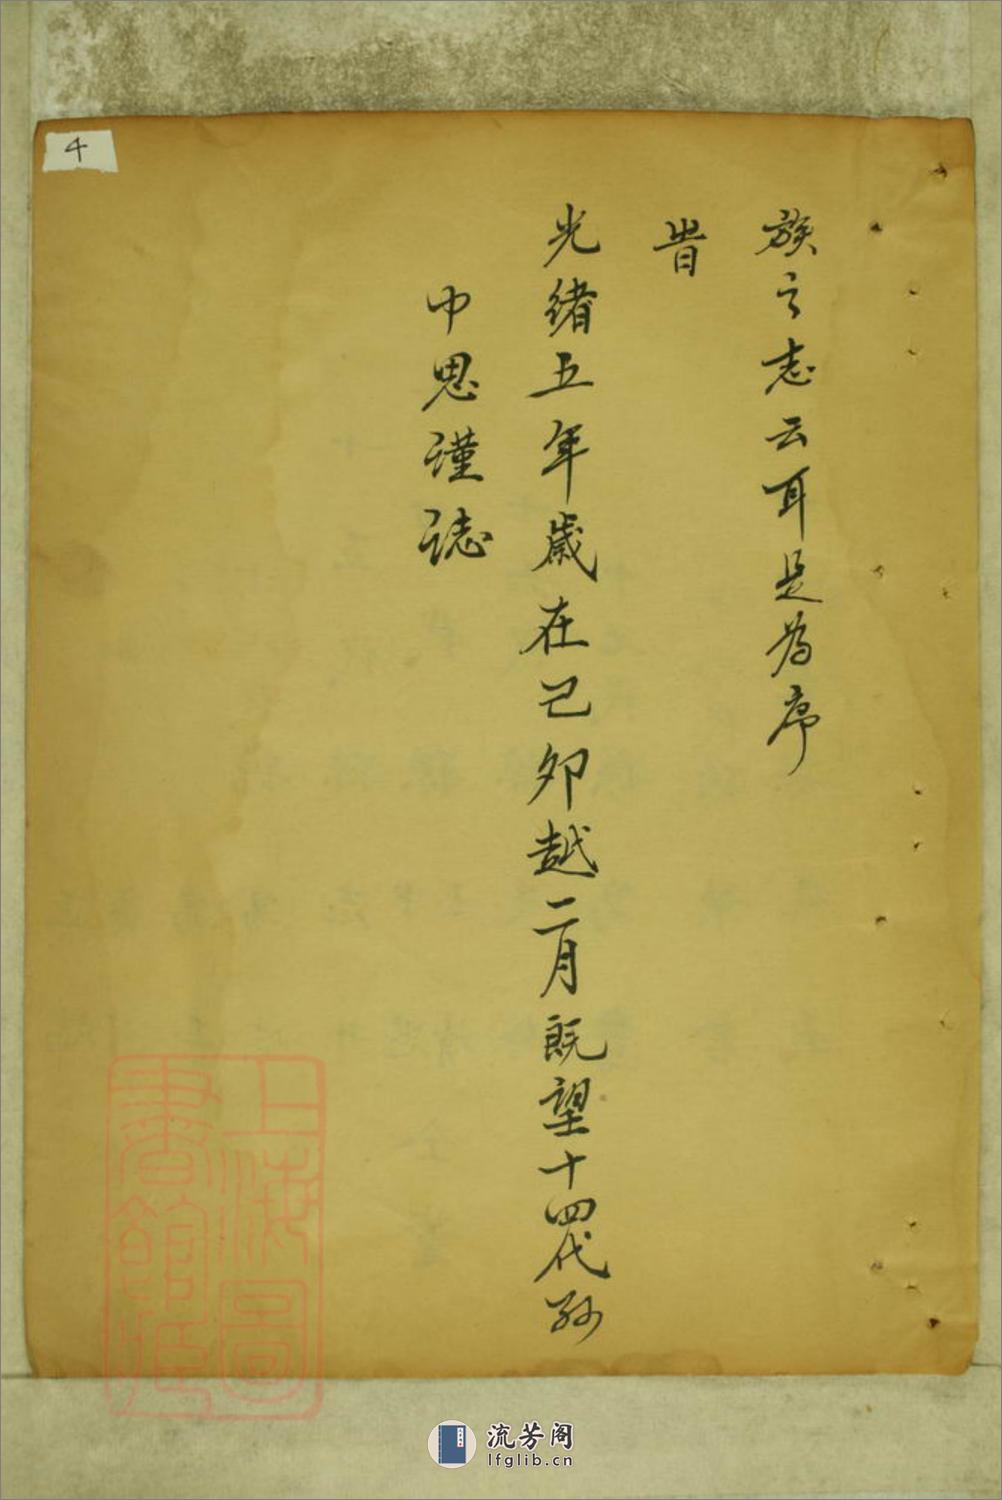 族之志云耳是為序
旹
光緒五年歲在己卯越二月既望十四代孫
巾思謹誌
4
上海圖
書館藏
流芳阁
lfglib.cn